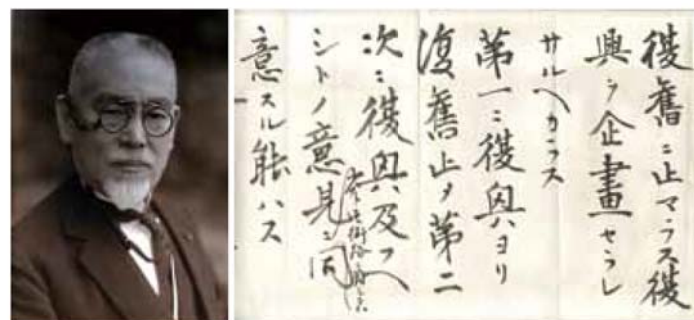 復舊ニ止マラス復
興ヲ企畫セラレ
サルヘカラス
第一ニ復興ハヨリ
復舊止メ第二
次ニ復興及フヘ
シトノ意見ニ同
意スル能ハス